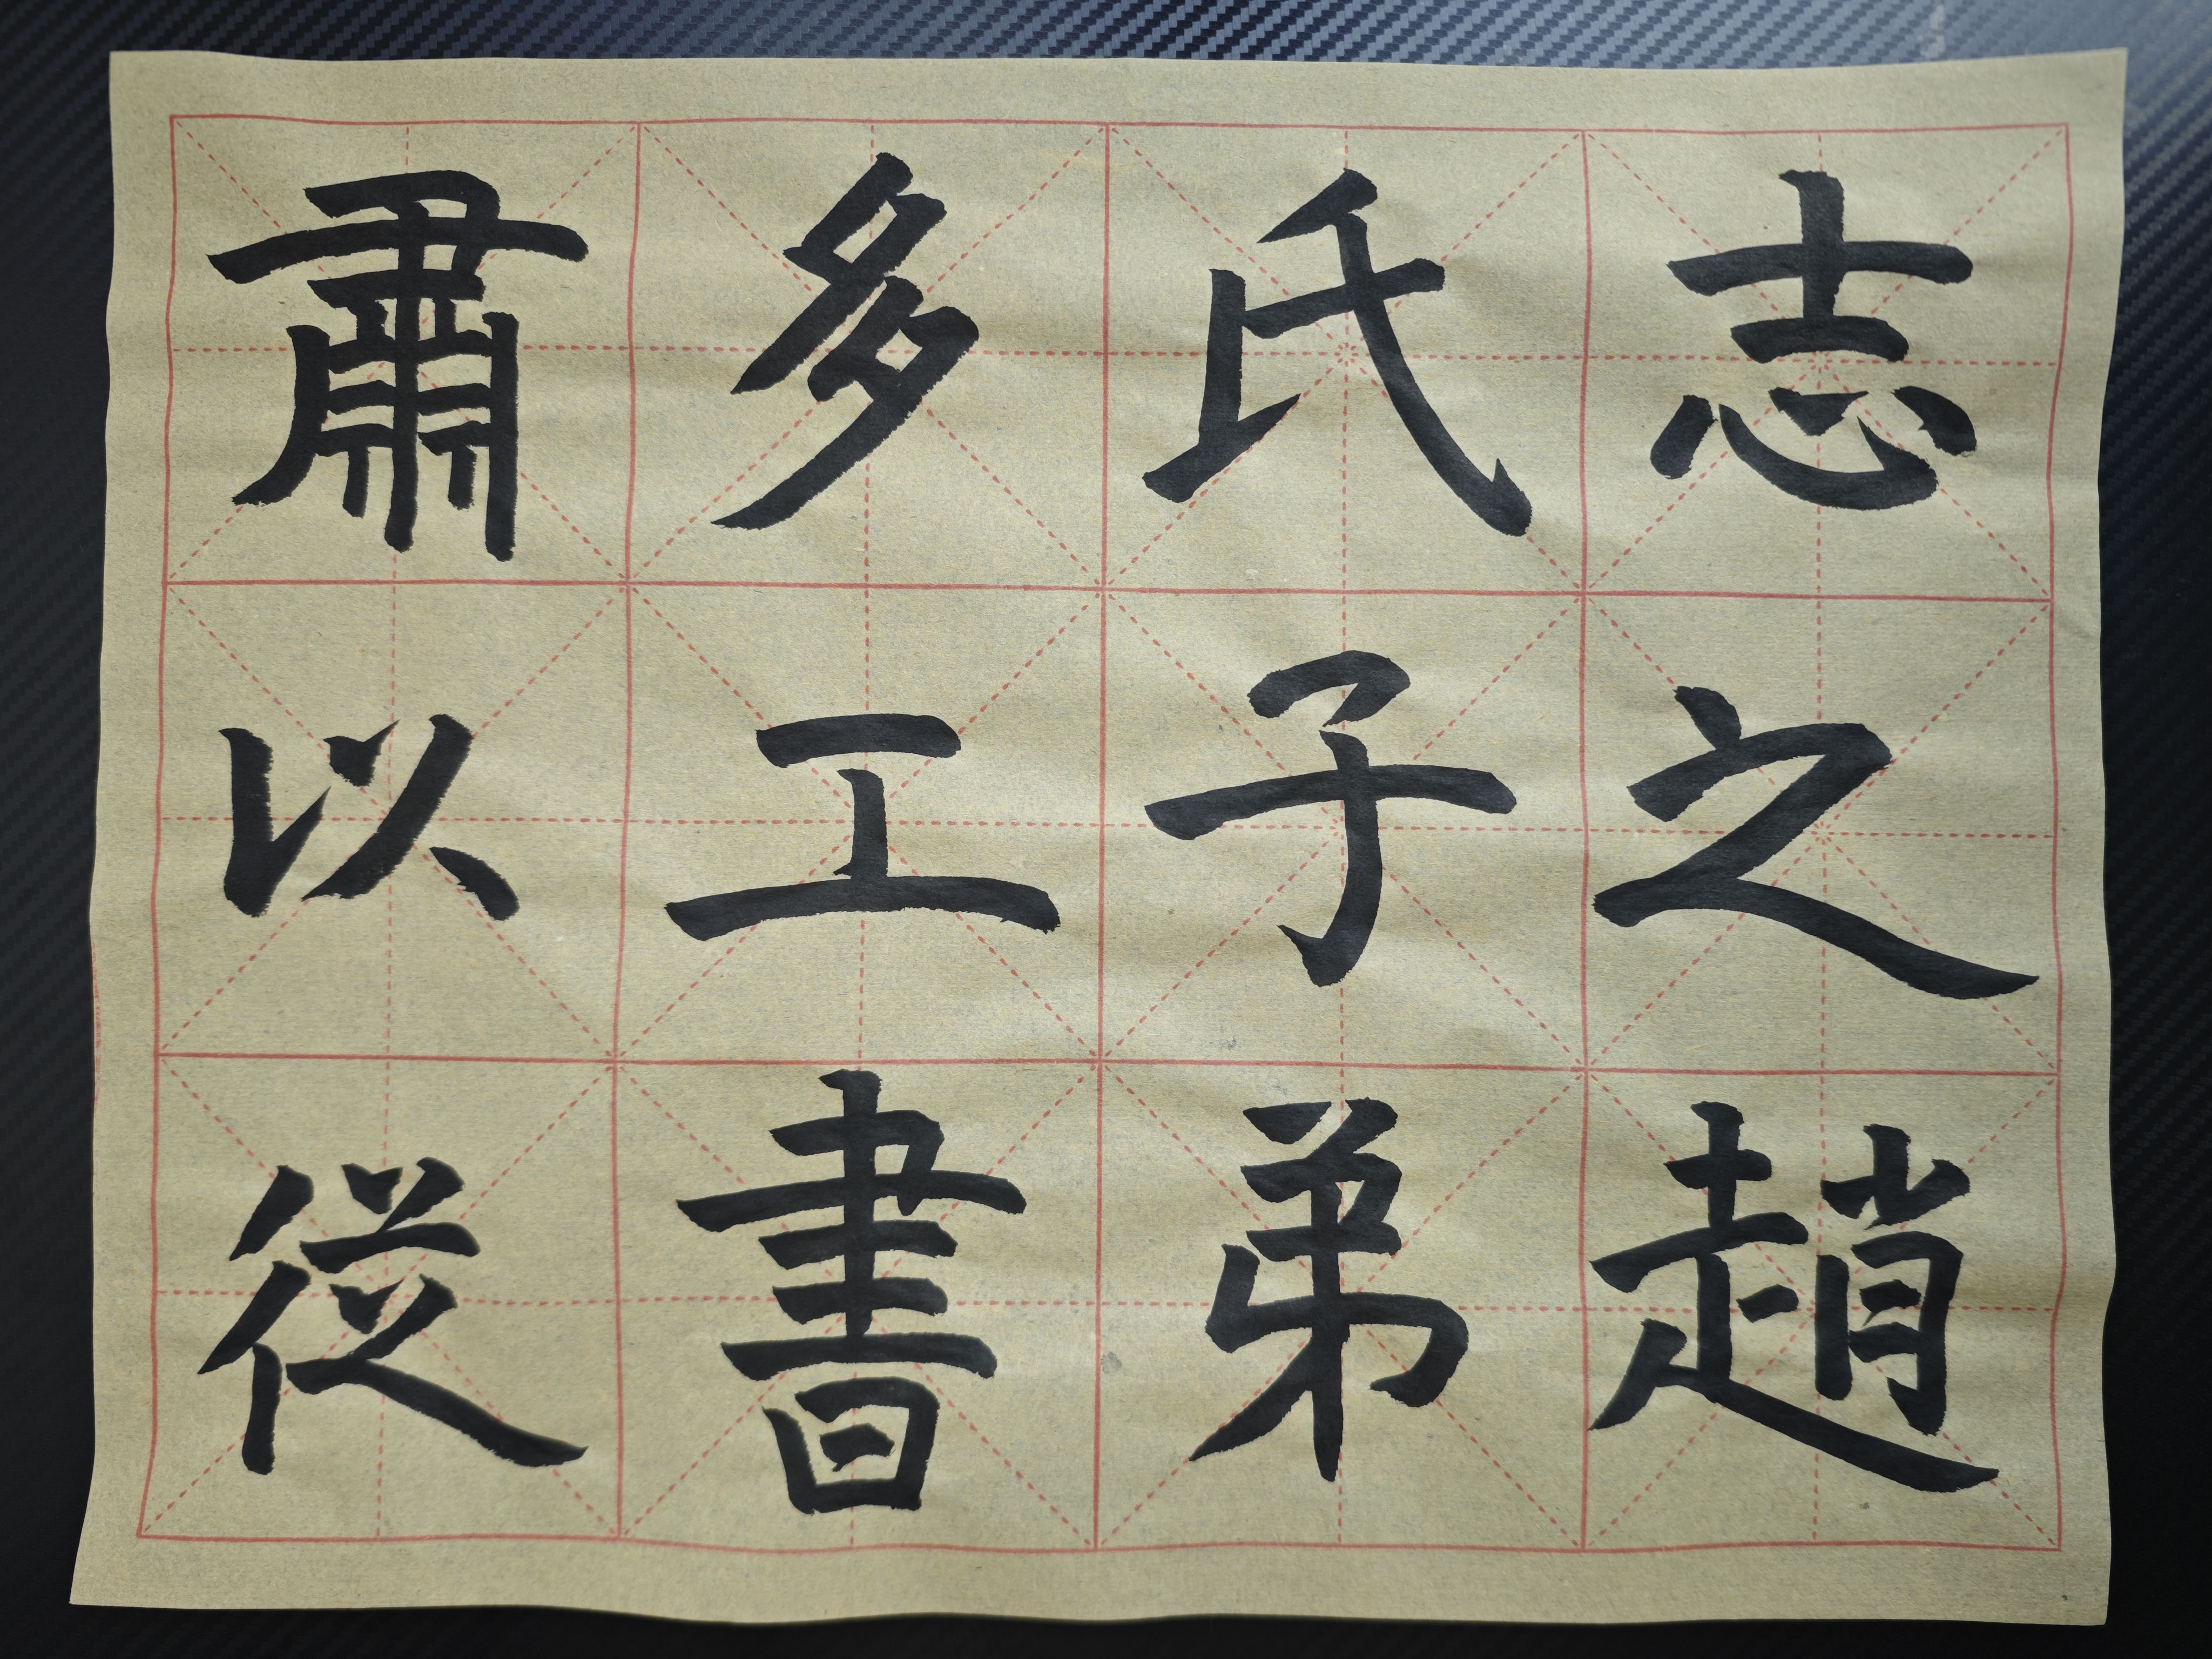 志之趙
氏子弟
多工書
肅以從